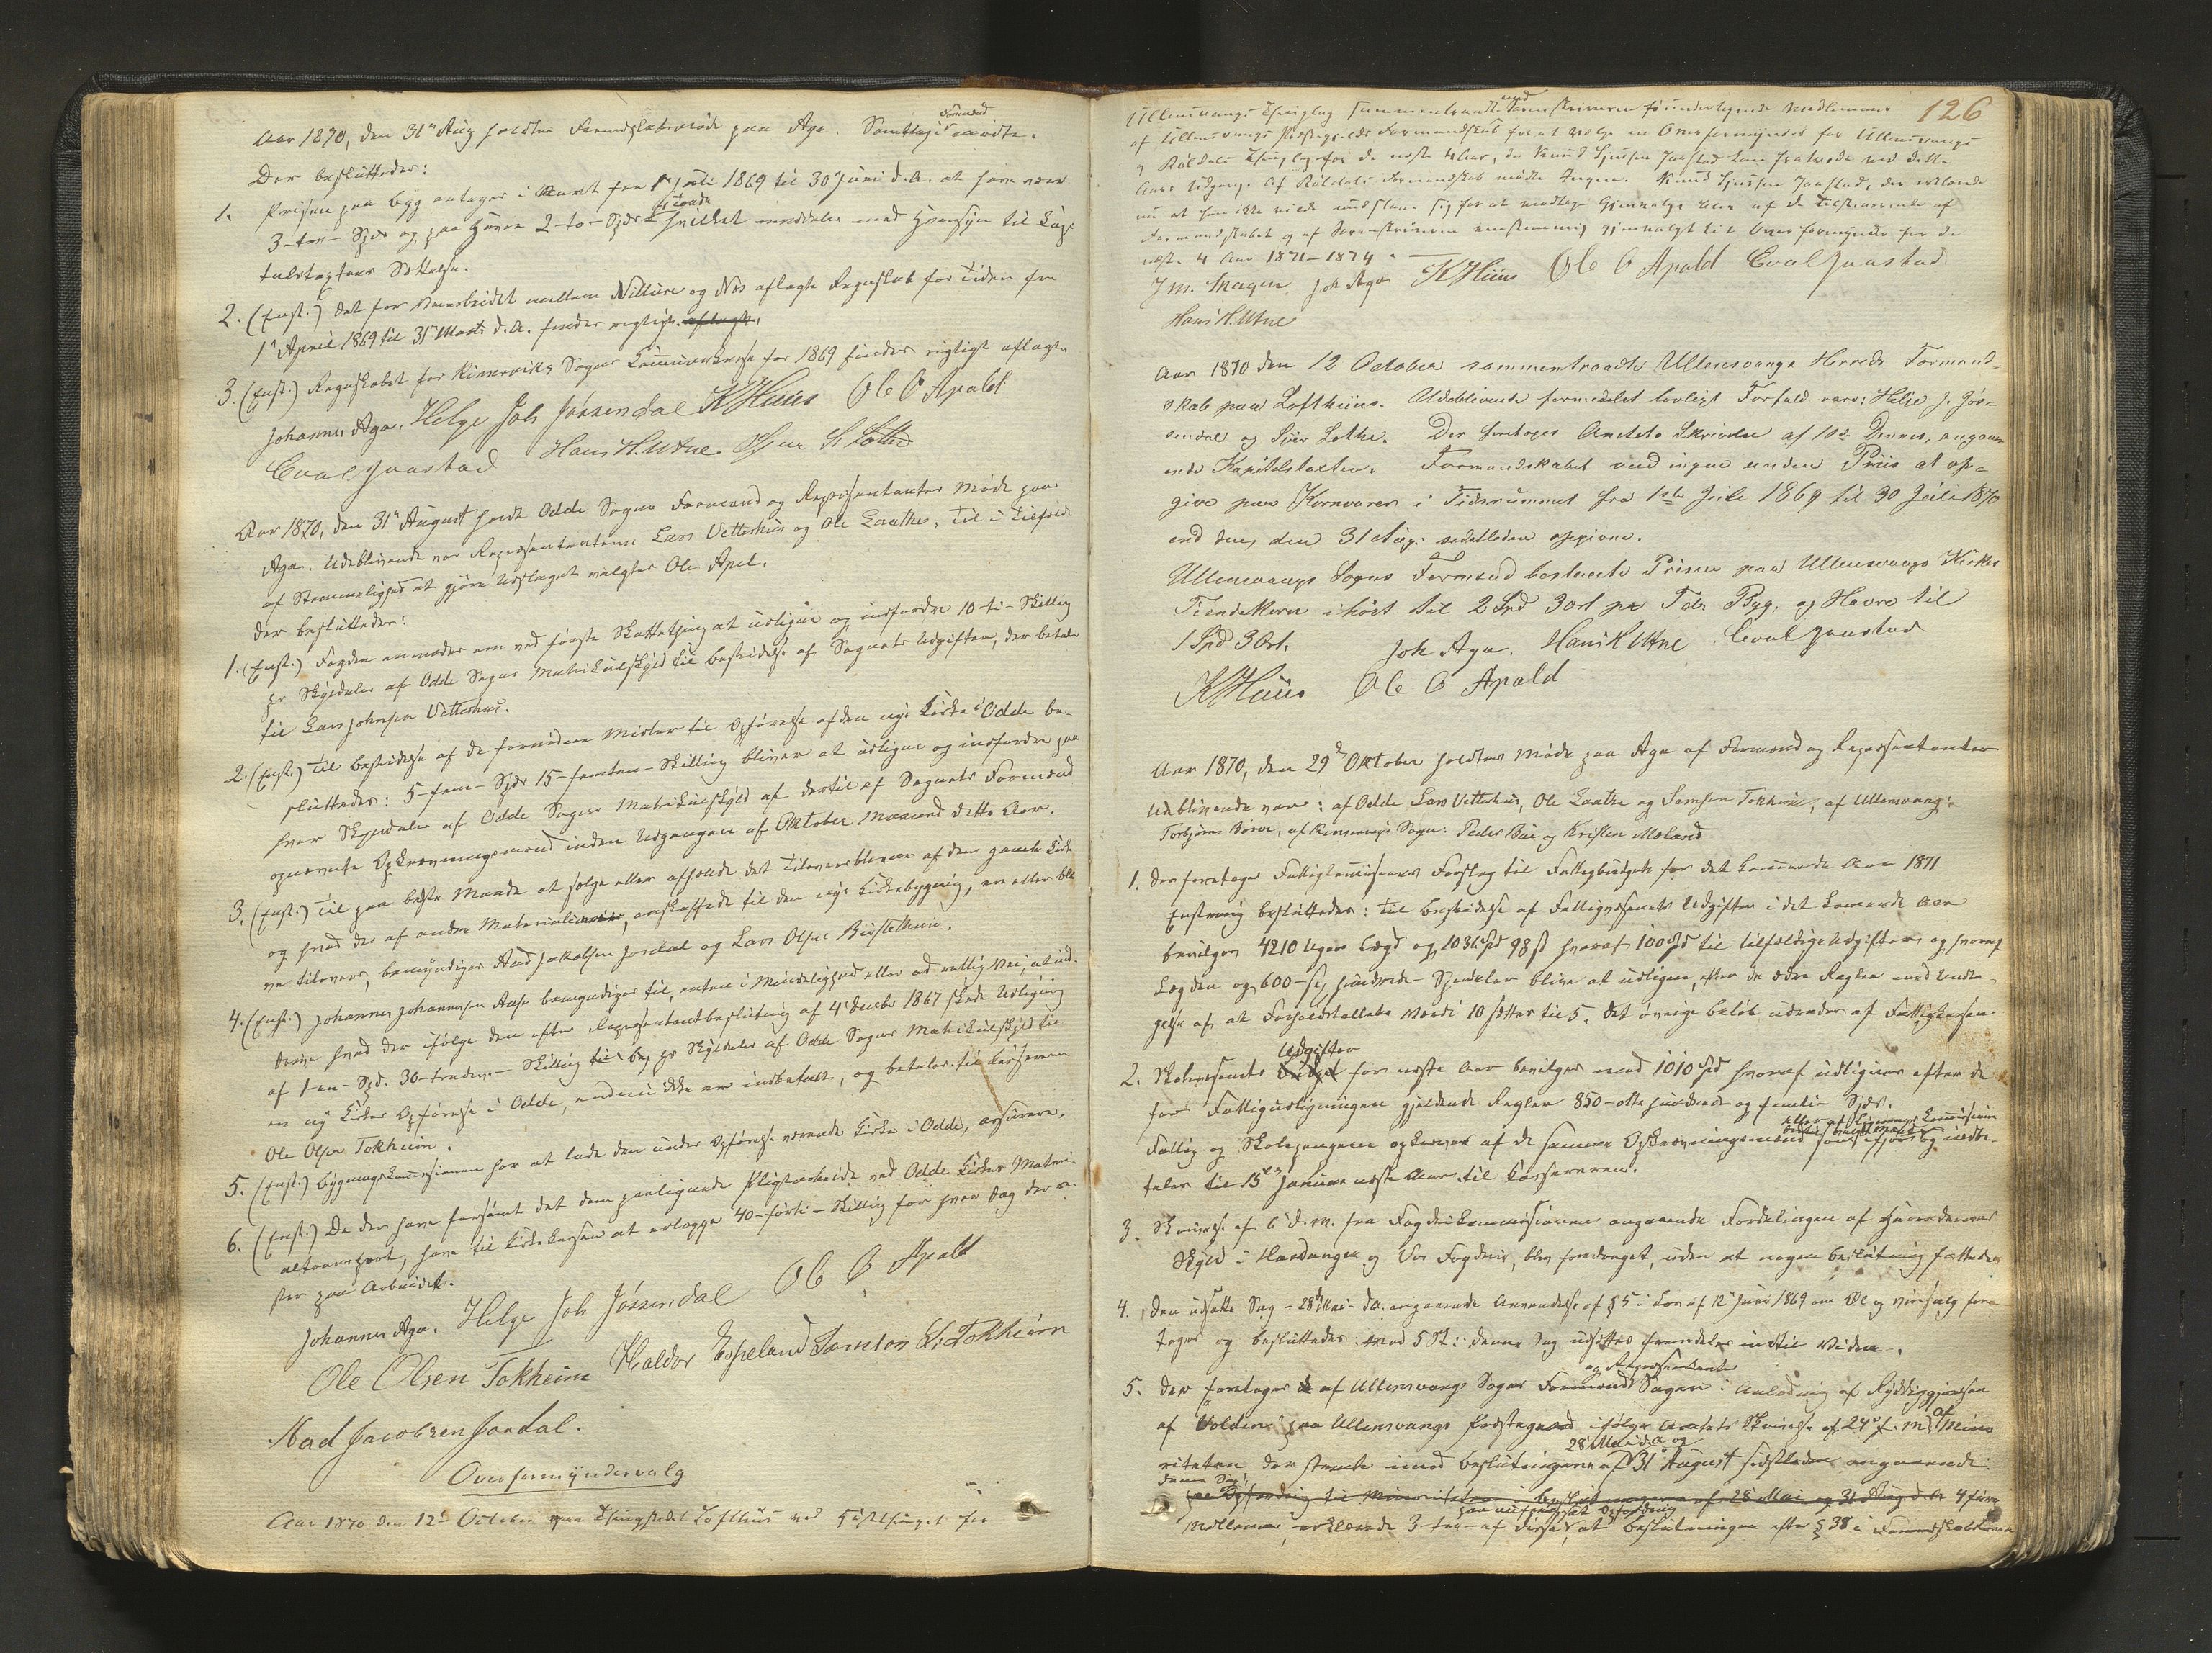 Aar 1870, den 31te Aug. holdtes Formandskabsmøde paa Aga. Samtlige Formænd mødte.
Der besluttedes:
1. Prisen paa Byg antages i Aaret fra 1ste Juli 1869 til 30te Juni d. A. at have været
3-tre- Spd. og paa Havre 2-to- Spd. pr Tønde hvilket meddeles med Hensyn til Capi-
talstaxtens Sættelse.
2. (Enst.) Det for Veiarbeidet mellem Vilure og Næs aflagte Regnskab for Tiden fra
1te April 1869 til 31te Marts d. A. findes rigtigt aflagt.
3. (Enst.) Regnskabet for Kinserviks Sogns Kommunekasse for 1869 findes rigtigt aflagt.
Johannes Aga. Helge Joh Jössendal K Huus Ole O Apald
Eval Jaastad Hans H. Utne Sjur S. Lothe
Aar 1870, den 31te August holdt Odde Sogns Formænd og Repræsentanter Møde paa
Aga. Udeblivende var Repræsentanterne Lars Vetterhus og Ole Laathe; til i Tilfælde
af Stemmelighed at gjøre Udslaget valgtes Ole Apel.
Der besluttedes:
1. (Enst.) Fogden anmodes om ved første Skattething at udligne og indfordre 10-ti- Skilling
pr Skylddaler af Odde Sogns Matrikulskyld til Bestridelse af Sognets Udgifter, der betales
til Lars Johnsen Vetterhus.
2. (Enst.) Til Bestridelse af de fornødne Midler til Opførelse af den nye Kirke i Odde be-
sluttedes: 5-fem- Spd. 15-femten- Skilling bliver at udligne og indfordre paa
hver Skylddaler af Odde Sogns Matrikulskyld af dertil af Sognets Formænd
opnævnte Opkrævningsmænd inden Udgangen af Oktober Maaned dette Aar.
3. (Enst.) Til paa bedste Maade at sælge eller afhænde det Tiloversblevne af den gamle Kirke
og hvad der af andre Materialier, anskaffede til den nye Kirkebygning, er eller bli-
ver tilovers, bemyndiges Aad Jakobsen Jordal og Lars Olsen Bustetun.
4. (Enst.) Johannes Johannessen Aase bemyndiges til, enten i Mindelighed eller ad rettslig Vei, at ind-
drive hvad der ifølge den efter Repræsentantbeslutning af 4de Decbr 1867 skede Udligning
af 1-en- Spd. 30-tredive- Skilling pr Skylddaler af Odde Sogns Matrikulskyld til
en ny Kirkes Opførelse i Odde, endnu ikke er indbetalt, og betales til Kassereren
Ole Olsen Tokheim.
5. (Enst.) Bygningskommissionen har at lade den under Opførelse værende Kirke i Odde, assurere.
6. (Enst.) De der have forsømt det dem paalignede Pligtarbeide ved Odde Kirkes Materi-
altransport, have til Kirkekassen at erlægge 40-førti- Skilling for hver Dag der re-
ster paa Arbeidet.
Johannes Aga. Helge Joh Jössendal Ole O. Apald
Ole Olsen Tokheim Haldor Espeland Samson L. Tokheim
Aad Jacobsen Jordal.
Overformyndervalg
Aar 1870 den 12te October paa Thingstedet Lofthuus ved Høstthinget for
126
Ullensvangs Thinglag sammentraadte med Sorenskriveren de undertegnede Medlemmer
af Ullensvangs Præstegjelds Formandskab for at vælge en Overformynder for Ullensvangs
og Røldals Thinglag for de næste 4 Aar, da Knud Sjursen Jaastad kan fratræde ved dette
Aars Udgang. Af Røldals Formandskab mødte Ingen. Knud Sjursen Jaastad, der erklærede
nu at han ikke vilde undslaae sig for at modtage Gjenvalg blev af de Tilstedeværende af
Formandskabet og af Sorenskriveren eenstemmig gjenvalgt til Overformynder for de
næste 4 Aar 1871-1874.
Joh Aga K Huus Ole O Apald Eval Jaastad
Hans H. Utne
Aar 1870 den 12 October sammentraadte Ullensvangs Herreds Formand-
skab paa Lofthuus. Udeblivende formedelst lovligt Forfald vare: Helje J. Jös-
sendal og Sjur Lothe. Der foretages Amtets Skrivelse af 10de Dennes, angaa-
ende Kapitelstaxten. Formandskabet ved ingen anden Priis at op-
give paa Kornvarer i Tidsrummet fra 1ste Juli 1869 til 30 Juli 1870
end den, den 31 Aug: sidstleden opgivne.
Ullensvangs Sogns Formænd bestemte Prisen paa Ullensvangs Kirkes
Tiendekorn i høst til 2 Spd 3 ort pr Tde Byg, og Havre til
1 Spd 3 Ort.
Joh Aga. Hans H Utne Eval Jaastad
K Huus Ole O Apald
Aar 1870, den 29de Oktober holdtes Møde paa Aga af Formænd og Repræsentanter
Udeblivende var: af Odde Lars Vetterhus, Ole Laathe og Samson Tokheim, af Ullensvang:
Torbjørn Børve, af Kinserviks Sogn: Peder Bue og Kristen Maland.
1. Der foretages Fattigkommissionens Forslag til Fattigbudget for det kommende Aar 1871
Enstemmig besluttedes: Til Bestridelse af Fattigvæsenets Udgifter i det kommende Aar
bevilges 4210 Ugers Lægd og 1036 Spd 98 ß hvoraf 100 Spd til tilfældige Udgifter og hvoraf
Lægden og 600-sex hundrede- Spesidaler blive at udligne, efter de ældre Regler med Undta-
gelse af at Forholdstallets Værdi 10 sættes til 5. Det øvrige beløb udredes af Fattigkassen.
2. Skolevæsenets Udgifter for næste Aar bevilges med 1010 Spd hvoraf udlignes efter de
for Fattigudligningen gjældende Regler 850-otte hundrede og femti- Spd.
Fattig og Skolepengene opkræves af de samme Opkrævningsmænd som ifjor og indbe-
tales til 15de Januar næste Aar til Kassereren.
3. Skrivelse af 6te d. M. fra Fogderikommissionen angaaende Fordelingen af Herredernes
Skyld i Hardanger og Vos Fogderi, blev foredraget, uden at nogen Beslutning fattedes
4. Den udsatte Sag - 28de Mai - d. A. angaaende Anvendelse af § 5 i Lov af 12te Juni 1869 om Øl og Vinsalg fore-
tages og besluttedes mod 5 St: denne Sag udsættes fremdeles indtil Videre.
5. Der foretages af Ullensvangs Sogns Formænd og Repræsentanter Sagen i Anledning af Ryddiggjørelsen
af "Volden" paa Ullensvangs Præstegaard ifølge Amtets Skrivelse af 24de f. M. af Mino-
riteten der stemte imod Beslutningerne af 28 Mai d. A og 31te August sidstleden angaaende
denne Sag, paa Opfordring til Minoriteten i Beslutningerne af 28 Mai og 31 Aug. d. A. 4 fire
Mellemer, erklærede 3-tre- af disse, paa Opfordring at Beslutningen efter § 38 i Formandskabsloven